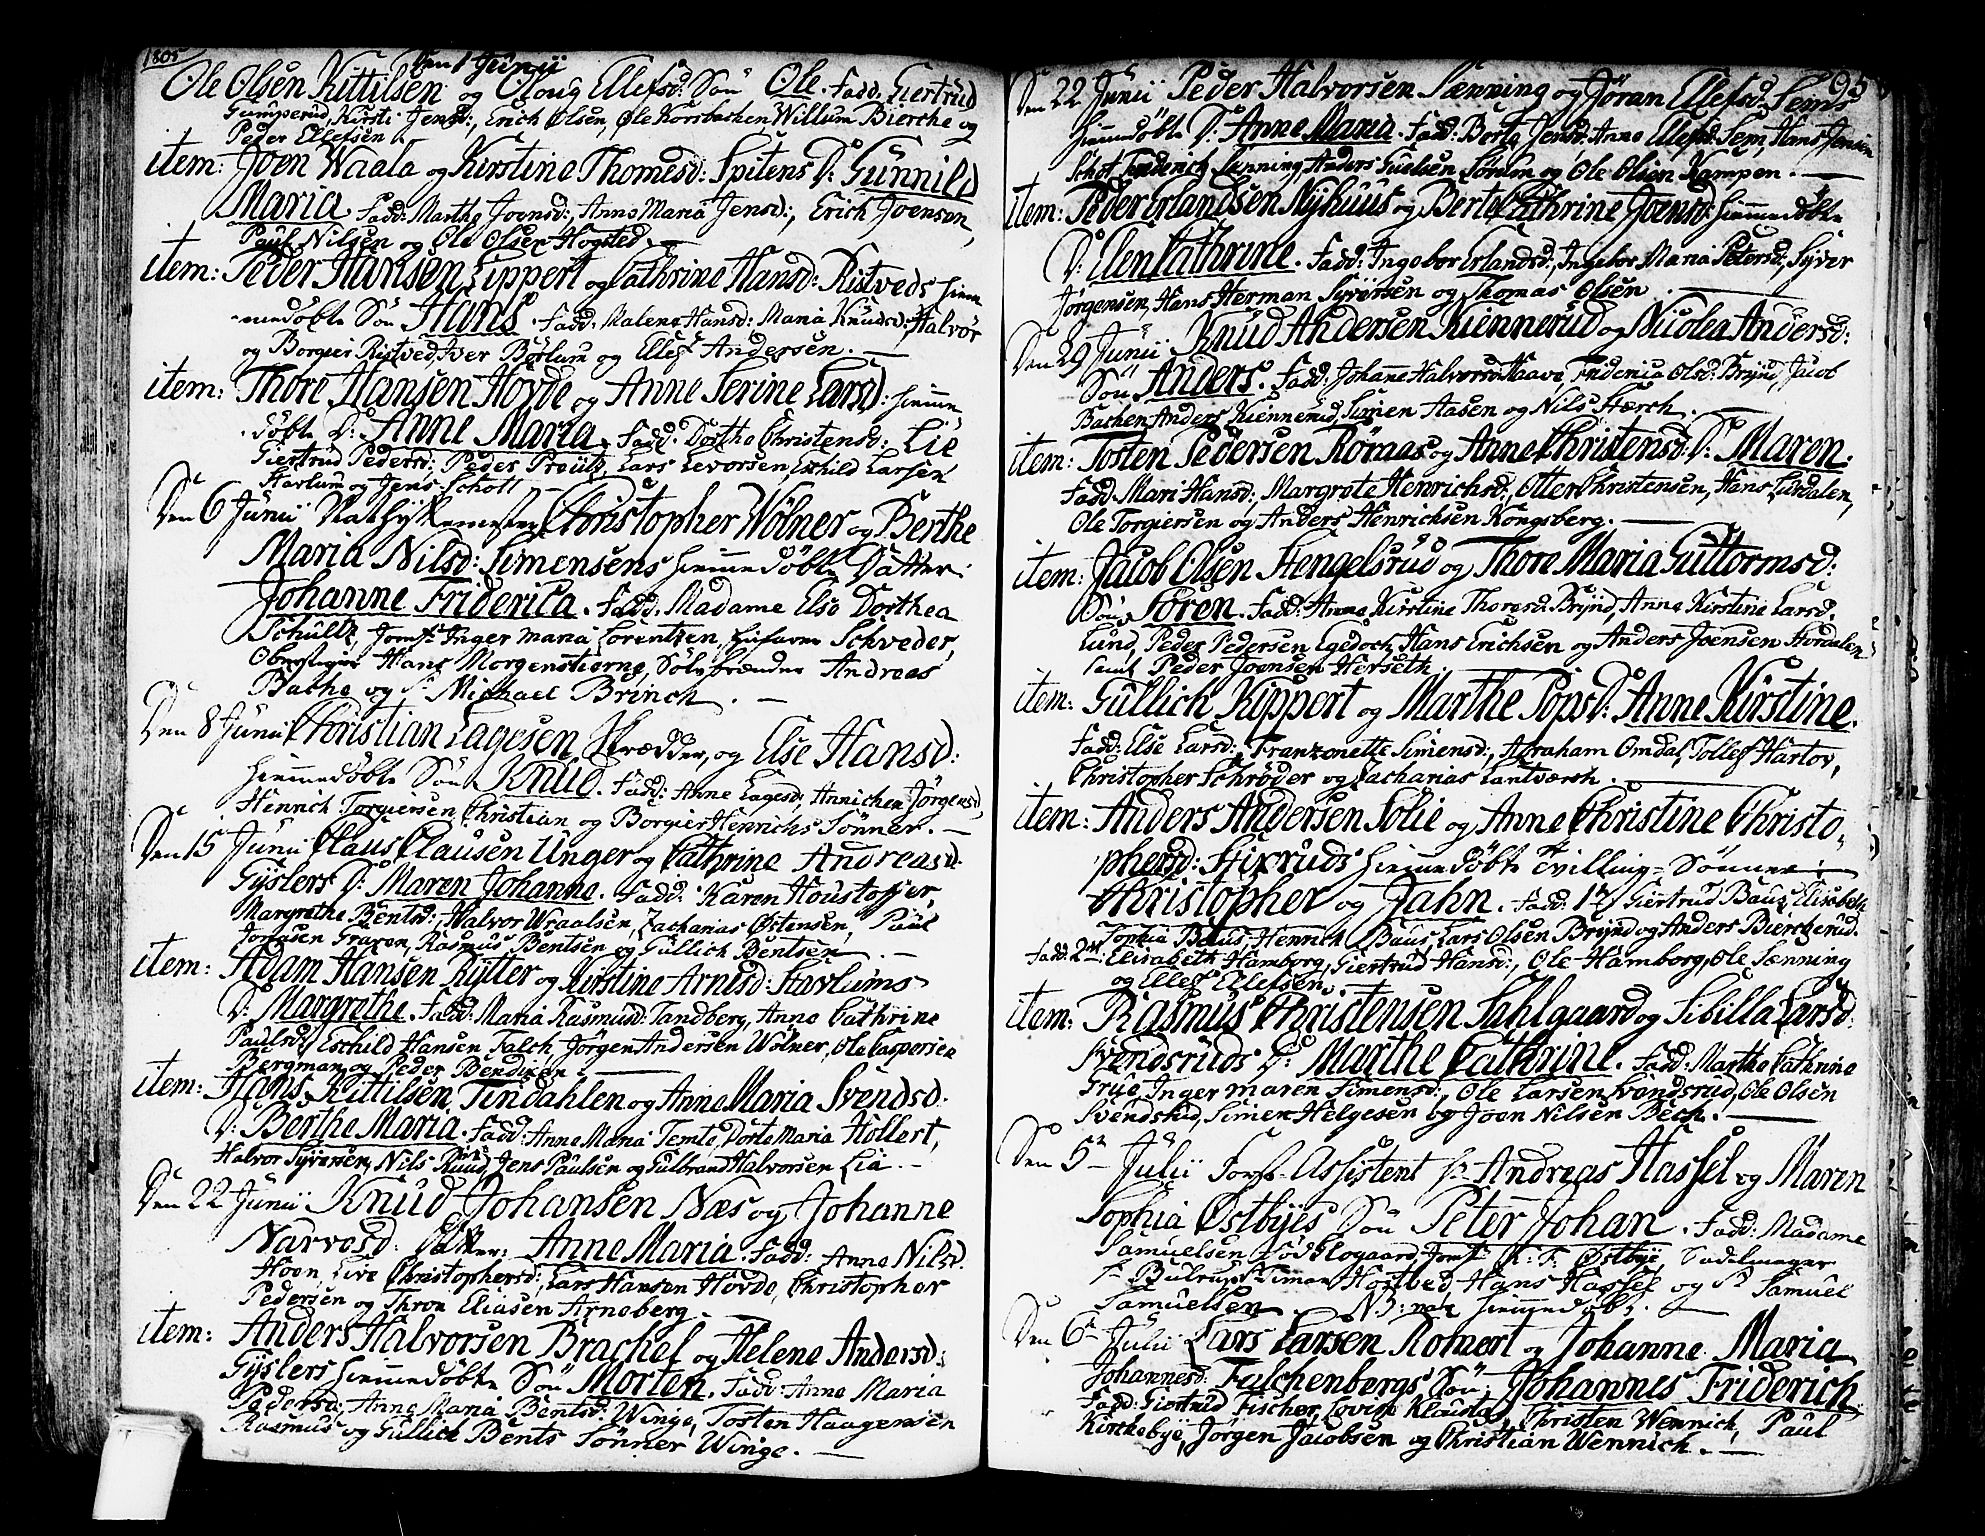 1805
Den 1 Junii
Ole Olsen Kittilsen og Oloug Ellefsd: Sön Ole. Fadd: Giertrud
Gumperud, Kirsti Jensd:, Erich Olsen, Ole Korsbachen, Willum Bierche og
Peder Ellefsen.
item: Joen Waala og Kirstine Thomesd: Spitens D: Gunnild
Maria. Fadd: Marthe Joensd:, Anne Maria Jensd:, Erich Joensen,
Paul Nilsen og Ole Olsen Hogsted.
item: Peder Hansen Lippert og Cathrine Hansd: Ristveds hiem
medöbte Sön Hans. Fadd: Malene Hansd: Maria Knudsd: Halvor
og Borgier Ristved, Iver Börlum og Ellef Andersen.
item: Thore Hansen Hovde og Anne Serine Larsd: hiemme
döbte D: Anne Maria. Fadd: Dorthe Christensd: Lie
Giertrud Pedersd: Peder Preütz, Lars Levorsen, Eschild Larsen
Harlum og Jens Schott
Den 6 Junii Christopher Wölner og Berthe
Maria Nilsd: Simensens hiemmedöbte Datter:
Johanne Friderica. Fadd: Madame Else Dorthea
Schultz, Jomf: Inger Maria Lorentzen, Schveder,
Hans Morgenstierne, Sölvbrænder Andreas
Bache og Sr Michael Brinch.
Den 8 Junii Christian Lagesen Skrædder, og Else Hansd:
hiemmedöbte Sön Knud. Fadd: Anne Lagesd: Annichen Jörgensd,
Henrich Torgiersen, Christian og Borgier Henrichs Sönner.
Den 15 Junii Claus Clausen Unger og Cathrine Andreasd:
Gyslers D: Maren Johanne. Fadd: Karen Houstoffer,
Margrethe Bentsd:, Halvor Wraalsen, Zacharias Östensen, Paul
Jonasen Graven, Rasmus Bentsen og Gullich Bentsen.
item: Adam Hansen Rytter og Kirstine Arnesd: Harlums
D: Margrethe. Fadd: Maria Rasmusd: Tandberg, Anne Cathrine
Paulsd:, Eschild Hansen Falch, Jörgen Andersen Wölner, Ole Caspersen
Bergman og Peder Bendixen.
item: Hans Kittilsen Tindahlen og Anne Maria Svendsd:
D: Berthe Maria. Fadd: Anne Maria Temte, Dorte Maria Hollert,
Halvor Syversen, Nils Ruud, Jens Paulsen og Gulbrand Halvorsen Lia.
Den 22 Junii Knud Johansen Næs og Johanne
Narvesd: Datter: Anne Maria. Fadd: Anne Nilsd:
Hoen, Live Christophersd:, Lars Hansen Hovde, Christopher
Pedersen og Thron Eliasen Arneberg.
item: Anders Halvorsen Brachel og Helene Andersd:
Gyslers hiemmedöbte Sön Morten. Fadd: Anne Maria
Pedersd: Anne Maria Bentsd: Winge, Tosten Haagensen
Rasmus og Gullich Bents Sönner Winge.
95
Den 22 Junii Peder Halvorsen Senning og Jöran Ellefsd: Sems
hiemmedöbte D: Anne Maria. Fadd: Berte Jensd: Anne Ellefsd: Sem, Hans Jensen
Schot, Friderich Senning, Anders Guelsen Sörum og Ole Olsen Kampen.
item: Peder Erlandsen Nyhuus og Berte Cathrine Joensd: hiemmedöbte
D: Elen Cathrine. Fadd: Ingebor Erlandsd:, Ingebor Maria Petersd:, Syver
Jörgensen, Hans Herman Syversen og Thomas Olsen.
Den 29 Junii Knud Andersen Kiennerud og Nicolea Andersd:
Sön Anders. Fadd: Johanne Halvorsd: Haave, Friderica Olsd: Brynd, Jacob
Bachen, Anders Kiennerud, Simen Aasen og Nils Stærch.
item: Tosten Pedersen Röraas og Anne Christensd: D: Maren.
Fadd: Mari Hansd:, Margrete Henrichsd:, Otter Christensen, Hans Lurdalen,
Ole Torgiersen og Anders Henrichsen Kongsberg.
item: Jacob Olsen Stengelsrud og Thore Maria Guttormsd:
Sön Sören. Fadd: Anne Kirstine Thoresd: Brynd, Anne Kirstine Larsd:
Lund, Peder Pedersen Egedoch, Hans Erichsen og Anders Joensen Hordalen
samt Peder Joensen Herseth.
item: Gullich Kippert og Marthe Pops D: Anne Kirstine.
Fadd: Else Larsd:, Franzonette Simensd:, Abraham Omdal, Tollef Hartov,
Christopher Schröder og Zacharias Lantværch.
item: Anders Andersen Solie og Anne Christine Christo-
phersd: Stixruds hiemmedöbte Tvilling-Sönner:
Christopher og Jahn. Fadd: 1te Giertrud Baus, Elisabeth
Sophia Baus, Henrich Baus, Lars Olsen Brynd og Anders Biercherud.
Fadd: 2den: Elisabeth Hamborg, Giertrud Hansd:, Ole Hamborg, Ole Senning
og Ellef Ellefsen.
item: Rasmus Christensen Sahlgaard og Sibilla Larsd:
Svendsruds D: Marthe Cathrine. Fadd: Marthe Cathrine
Grue, Inger Maren Simensd:, Ole Larsen Svendsrud, Ole Olsen
Svendsrud, Simen Helgesen og Joen Nilsen Bech.
Den 5te Julii Forst-Assistent Hr Andreas Hassel og Maren
Sophia Östbyes Sön Peter Johan. Fadd: Madame
Samuelsen Flogaard, Jomfr: K: F: Östbye, Sadelmager
Hr Butrup, Simen Hostved, Hans Hassel og Sr Samuel
Samuelsen. NB: var hiemmedöbt.
Den 6te Julii Lars Larsen Romert og Johanne Maria
Johannesd: Falchenbergs Sön Johannes Friderich
Fadd: Giertrud Fischer, Lovise Klaustad, Christen Wennich, Paul
Kirchebye, Jörgen Jacobsen og Christian Wennich.